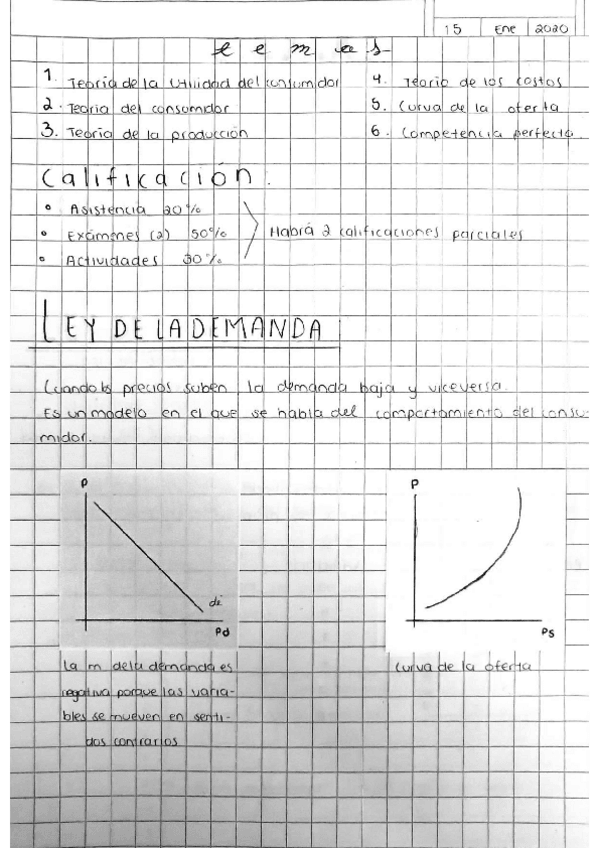 15 Ene 2020
temas
1. Teoria de la Utilidad del consumidor
2. Teoria del consumidor
3. Teoria de la producción
4. Teoria de los costos
5. Curva de la oferta
6. Competencia perfecta.
Calificación.
• Asistencia 20%
• Exámenes (2) 50%
• Actividades 30%
Habrá 2 calificaciones parciales
LEY DE LA DEMANDA
Cuando los precios suben, la demanda baja y viceversa.
Es un modelo en el que se habla del comportamiento del consu-
midor.
P
di
Pd
La m de la demanda es
negativa porque las varia-
bles se mueven en senti-
dos contrarios
P
Ps
Curva de la oferta